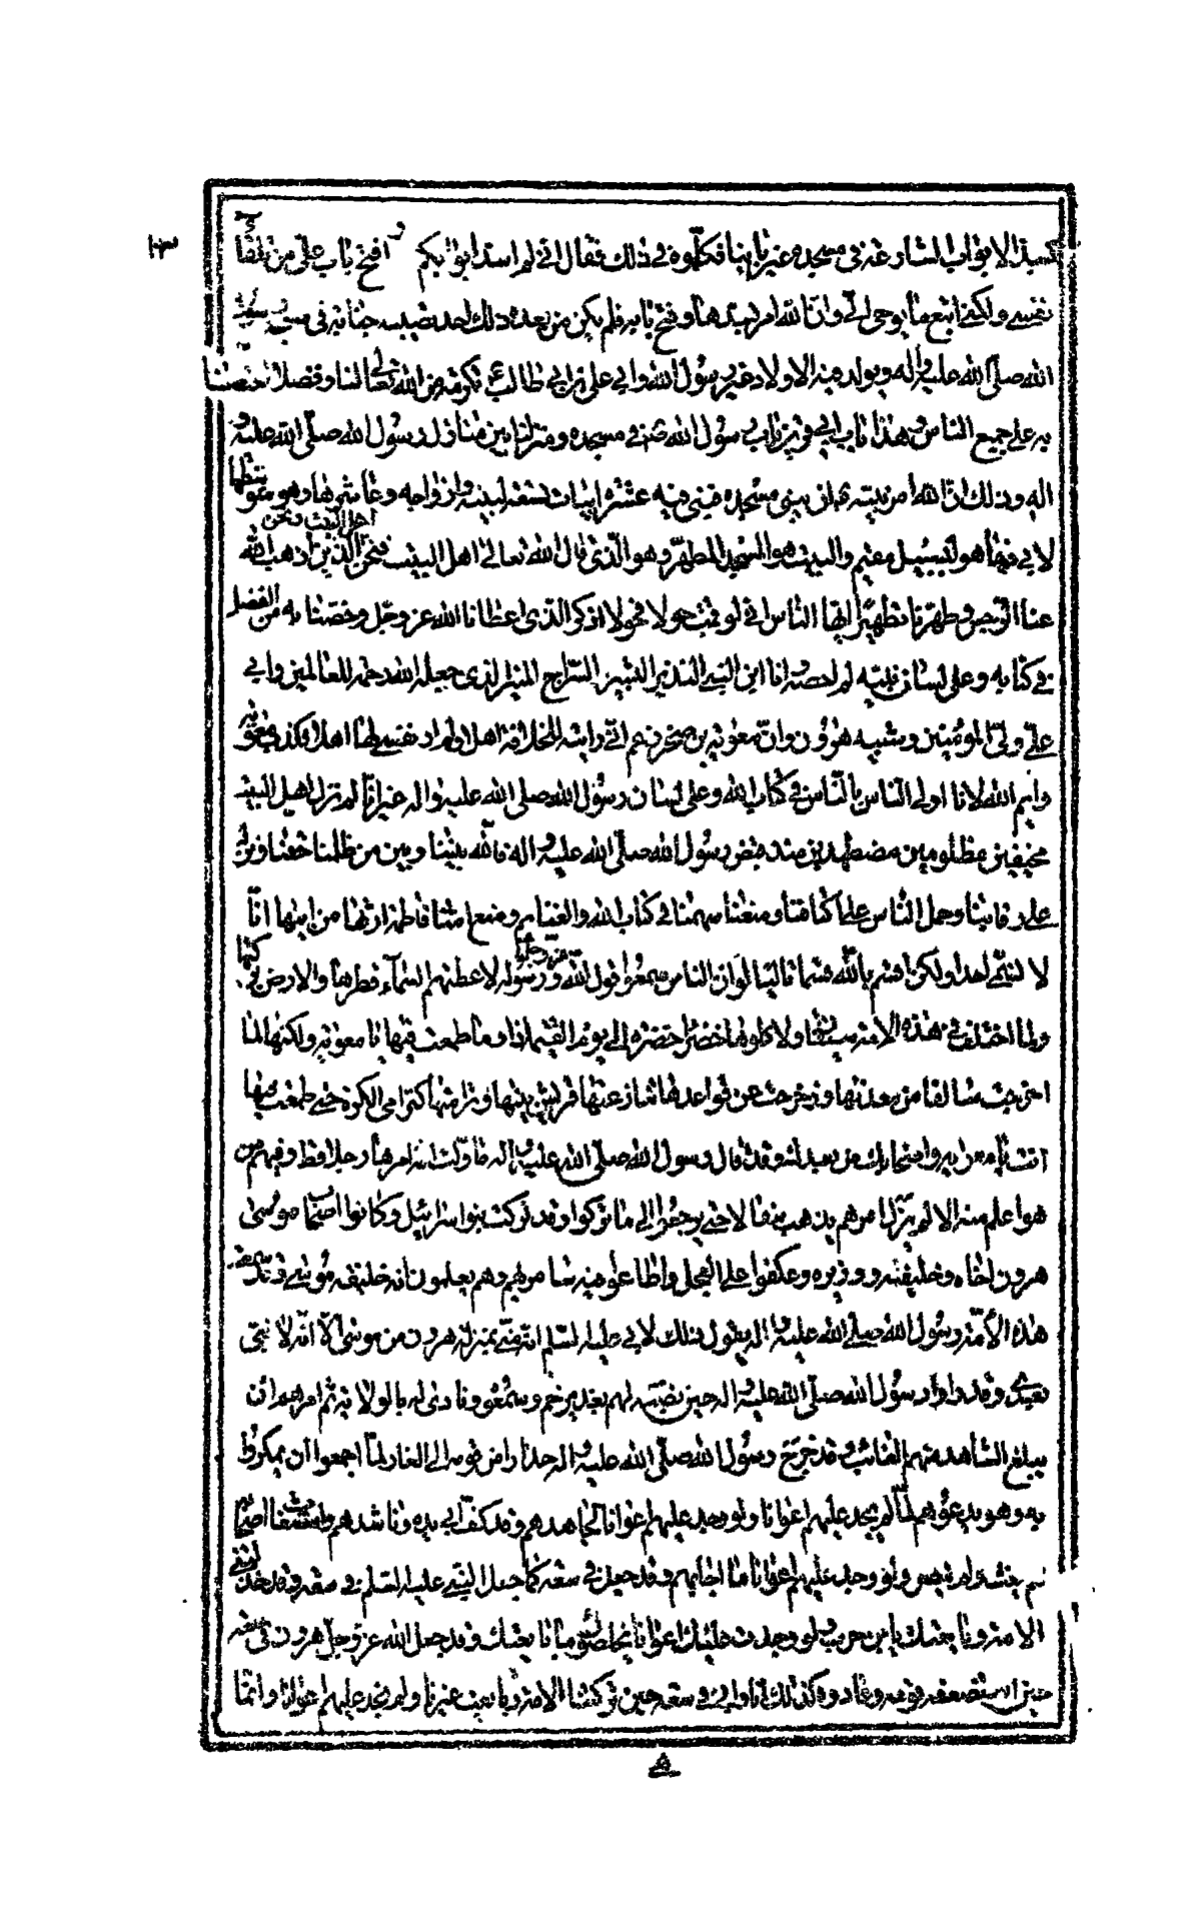 بسد الابواب الشارعة في مسجده غير بابنا فكلموه في ذلك فقال اني لم اسد ابوابكم و افتح باب علي من تلقاء
نفسي ولكني اتبع ما يوحى الي وان الله امر بسدها وفتح بابه فلم يكن من بعد ذلك احد تصيبه جنابة في مسجد رسول
الله صلى الله عليه واله ويولد فيه الاولاد غير رسول الله وابي علي بن ابي طالب ع تكرمة من الله تعالى لنا وفضلا اختصنا
به على جميع الناس وهذا باب ابي قرين باب رسول الله في مسجده ومنزلنا بين منازل رسول الله صلى الله عليه و
اله وذلك ان الله امر نبيه ان يبني مسجده فبنى فيه عشرة ابيات تسعة لبنيه وازواجه وعاشرها وهو متوسطها
لابي فها هو لبسبيل مقيم والبيت هو المسجد المطهر وهو الذي قال الله تعالى اهل البيت فنحن اهل البيت ونحن الذين اذهب الله
عنا الرجس وطهرنا تطهيرا ايها الناس اني لو قمت حولا فحولا اذكر الذي اعطانا الله عز وجل وخصنا به من الفضل
في كتابه وعلى لسان نبيه لم احصه وانا ابن النبي النذير البشير السراج المنير الذي جعله الله رحمة للعالمين وابي
علي ولي المؤمنين وشبيه هرون وان معوية بن صخر زعم اني رايته للخلافة اهلا ولم ار نفسي لها اهلا فكذب معوية
وايم الله لانا اولى الناس بالناس في كتاب الله وعلى لسان رسول الله صلى الله عليه واله غير انا لم نزل اهل البيت
مخيفين مظلومين مضطهدين منذ قبض رسول الله صلى الله عليه واله فالله بيننا وبين من ظلمنا حقنا ونزل
على رقابنا وحمل الناس على اكتافنا ومنعنا سهمنا في كتاب الله والغنايم ومنع امنا فاطمة ارثها من ابيها انا
لا نسمي احدا ولكن اقسم بالله قسما تاليا لو ان الناس سمعوا قول الله عز وجل ورسوله لاعطتهم السماء قطرها والارض بركتها
ولما اختلف في هذه الامة سيفان ولاكلوها خضراء خضرة الى يوم القيمة اذا وما طمعت فيها يا معوية ولكنها لما
اخرجت سالفا من معدنها وزحزحت عن قواعدها تنازعتها قريش بينها وترامتها كترامي الكرة حتى طمعت فيها
انت يا معوية واصحابك من بعدك وقد قال رسول الله صلى الله عليه واله ما ولت امة امرها رجلا قط وفيهم من
هو اعلم منه الا لم يزل امرهم يذهب سفالا حتى يرجعوا الى ما تركوا وقد تركت بنو اسرائيل وكانوا اصحاب موسى
هرون اخاه وخليفته ووزيره وعكفوا على العجل واطاعوا فيه سامريهم وهم يعلمون انه خليفة موسى وقد سمعت
هذه الامة رسول الله صلى الله عليه واله يقول ذلك لابي عليه السلم انه مني بمنزلة هرون من موسى الا انه لا نبي
بعدي وقد راوا رسول الله صلى الله عليه واله حين نصبه لهم بغدير خم وسمعوه ونادى له بالولاية ثم امرهم ان
يبلغ الشاهد منهم الغائب وقد خرج رسول الله صلى الله عليه واله حذارا من قومه الى الغار لما اجمعوا ان يمكروا
به وهو يدعوهم لما لم يجد عليهم اعوانا ولو وجد عليهم اعوانا لجاهدهم وقد كف ابي يده وناشدهم واستغاث اصحابه
فلم يغث ولم ينصر ولو وجد عليهم اعوانا ما اجابهم وقد جعل في سعة كما جعل النبي عليه السلم في سعة وقد خذلتني
الامة وبايعتك يا ابن حرب ولو وجدت عليك اعوانا يخلصون ما بايعتك وقد جعل الله عز وجل هرون في سعة
حين استضعفه قومه وعادوه كذلك انا وابي في سعة حين تركتنا الامة وبايعت غيرنا ولم نجد عليهم اعوانا وانما